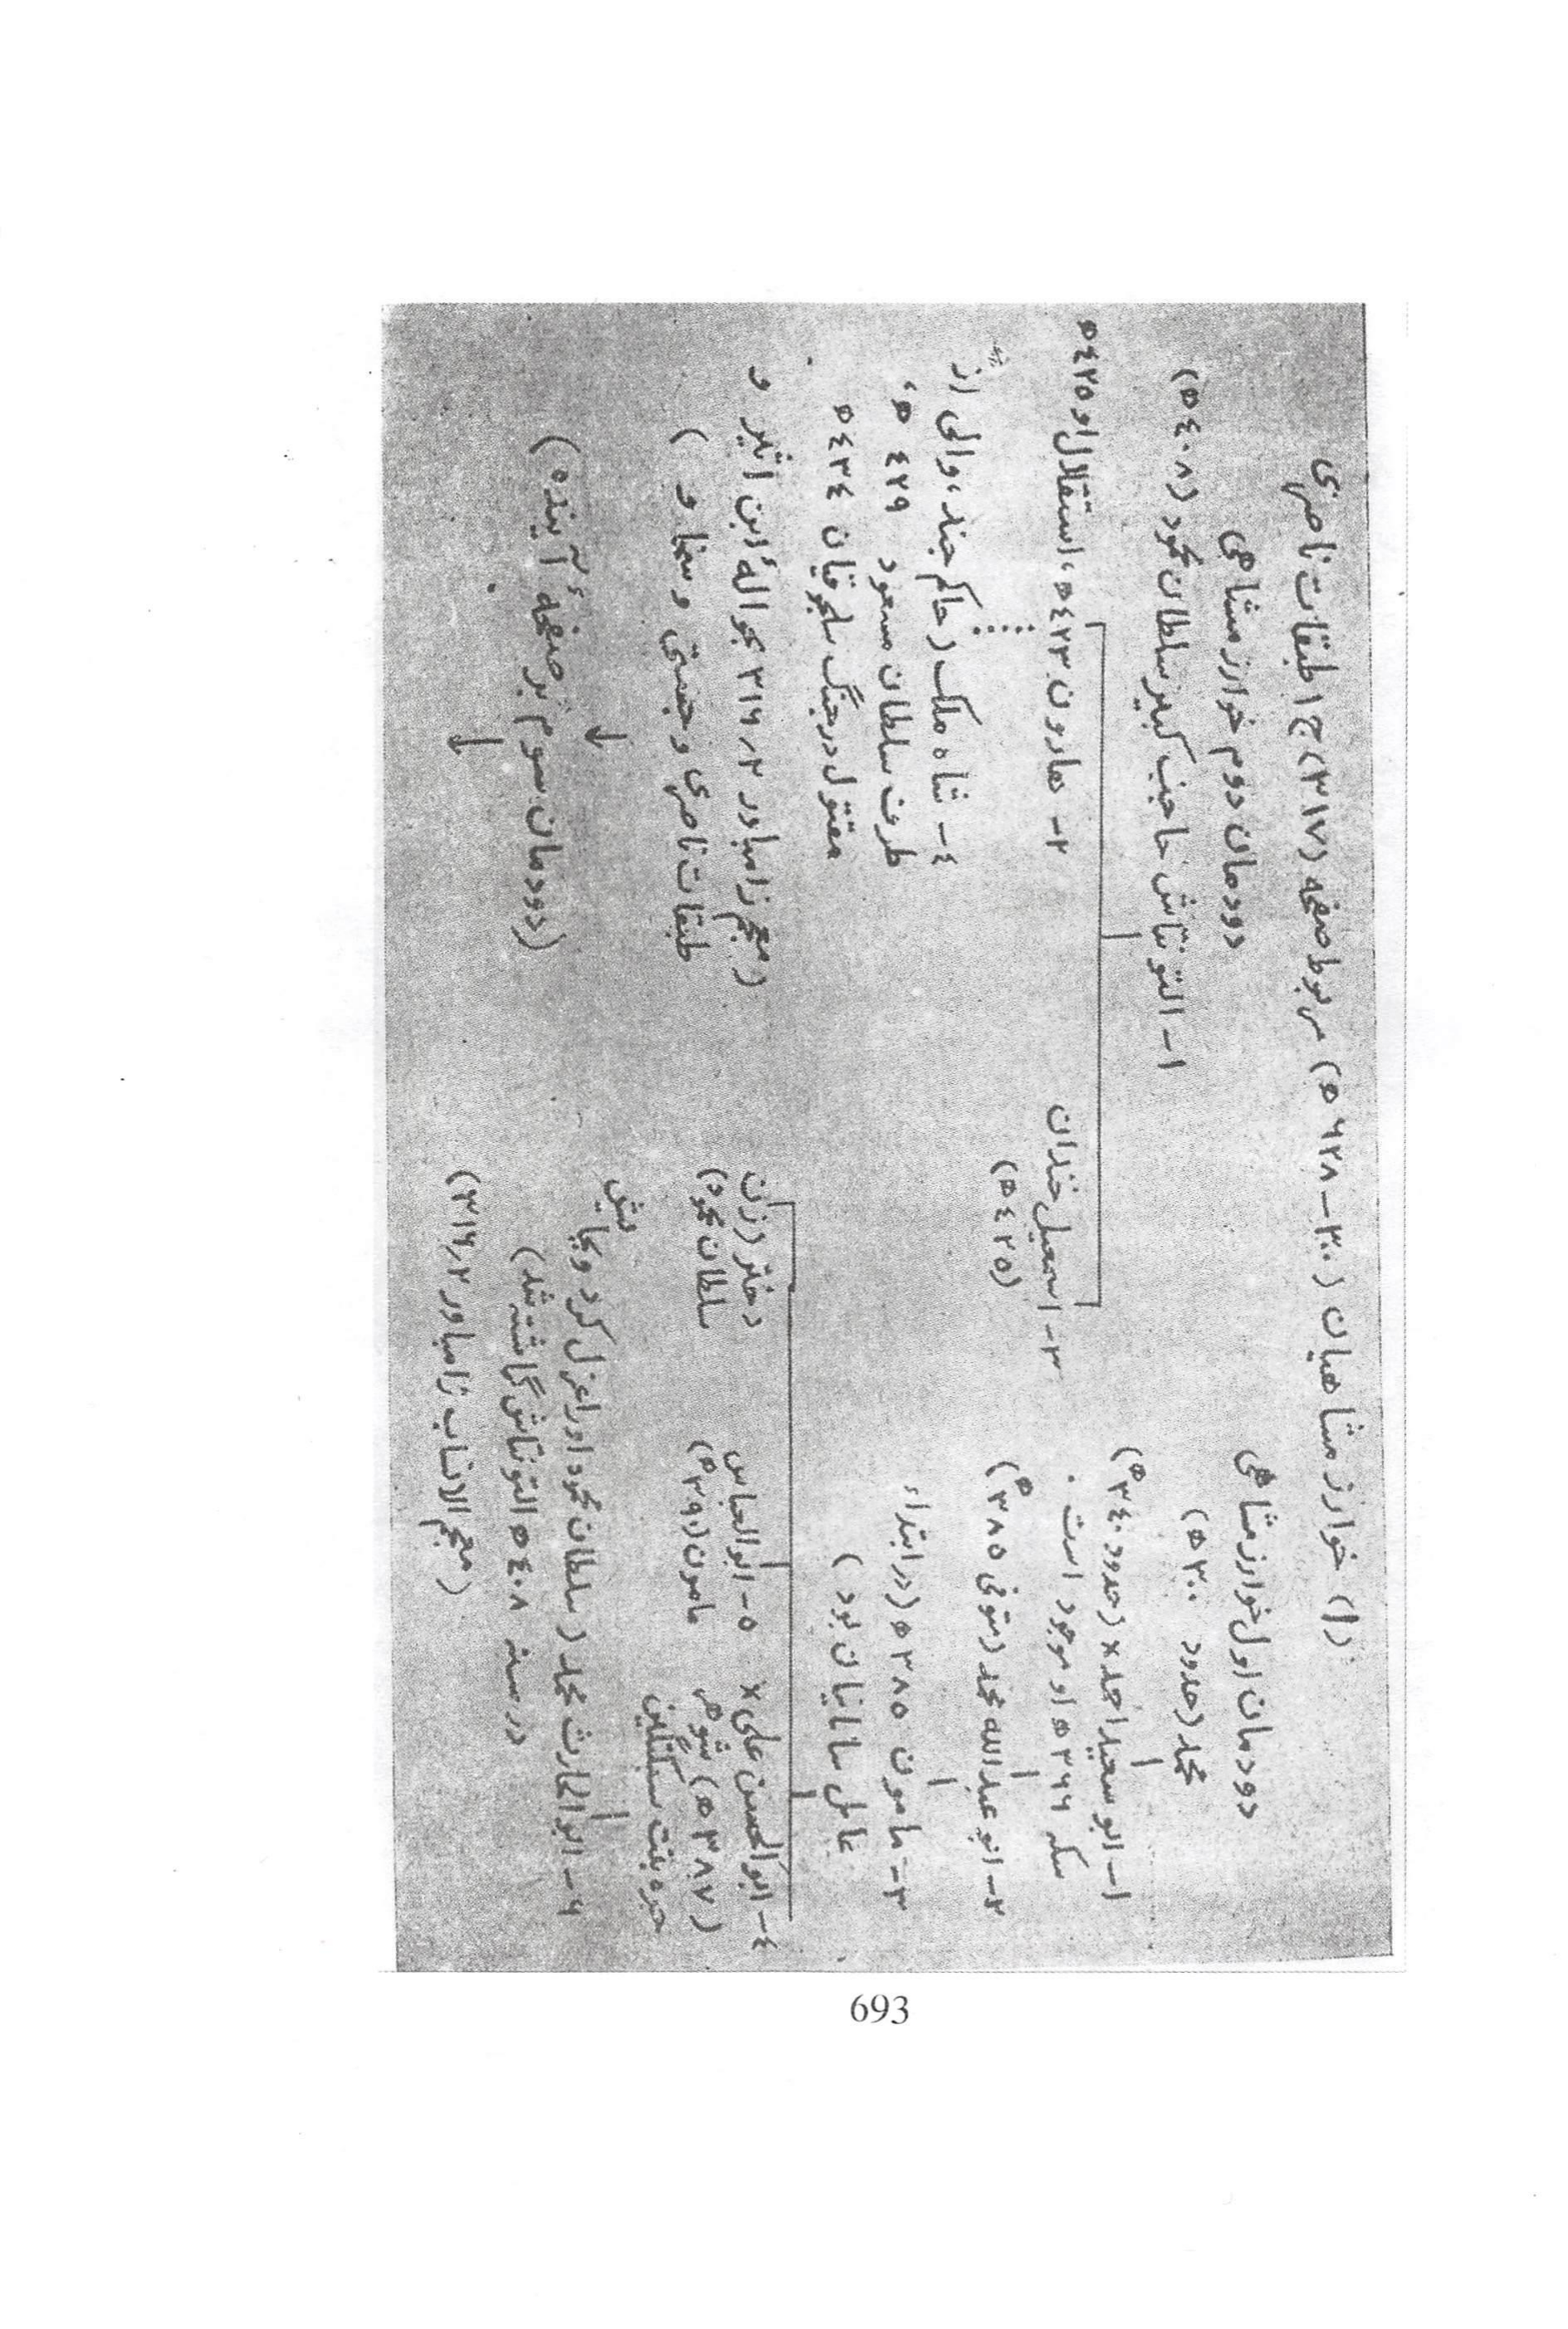 (۱) خوارزمشاهیان (۳۰۰ – ۶۲۸ ه) مربوط صفحه (۳۱۷) ج ۱ طبقات ناصری
دودمان اول خوارزمشاهی
محمد (حدود ۳۰۰ ه)
۱- ابو سعید احمد x (حدود ۳٤۰ ه)
سکه ۳۶۶ ه او موجود است .
۲- ابو عبدالله محمد (متوفی ۳۸۵ ه)
۳- مامون ۳۸۵ ه (در ابتداء
عامل سامانیان بود )
٤- ابوالحسن علی x
(۳۸۷ ه) شوهر
حره بنت سبکتگین
۵- ابوالعباس
مامون (۳۹۰ ه)
دختر (زن
سلطان محمود)
۶- ابوالحارث محمد (سلطان محمود او را عزل کرد و بجایش
در سنه ٤۰۸ ه التونتاش گماشته شد)
(معجم الانساب زامباور ۲ر۳۱۶)
دودمان دوم خوارزمشاهی
۱- التونتاش حاجب کبیر سلطان محمود (٤۰۸ ه)
۲- هارون ٤۲۳ ه، استقلال او ٤۲۵ ه
۳- اسمعیل خندان
(٤۲۵ ه)
٤- شاه ملک (حاکم جند، والی از
طرف سلطان مسعود ٤۲۹ ه،
مقتول در جنگ سلجوقیان ٤۳٤ ه
(معجم زامباور ۲ر۳۱۶ بحوالهٔ ابن اثیر و
طبقات ناصری و جنتی و سخاو )
(دودمان سوم بر صفحهٔ آینده)
693